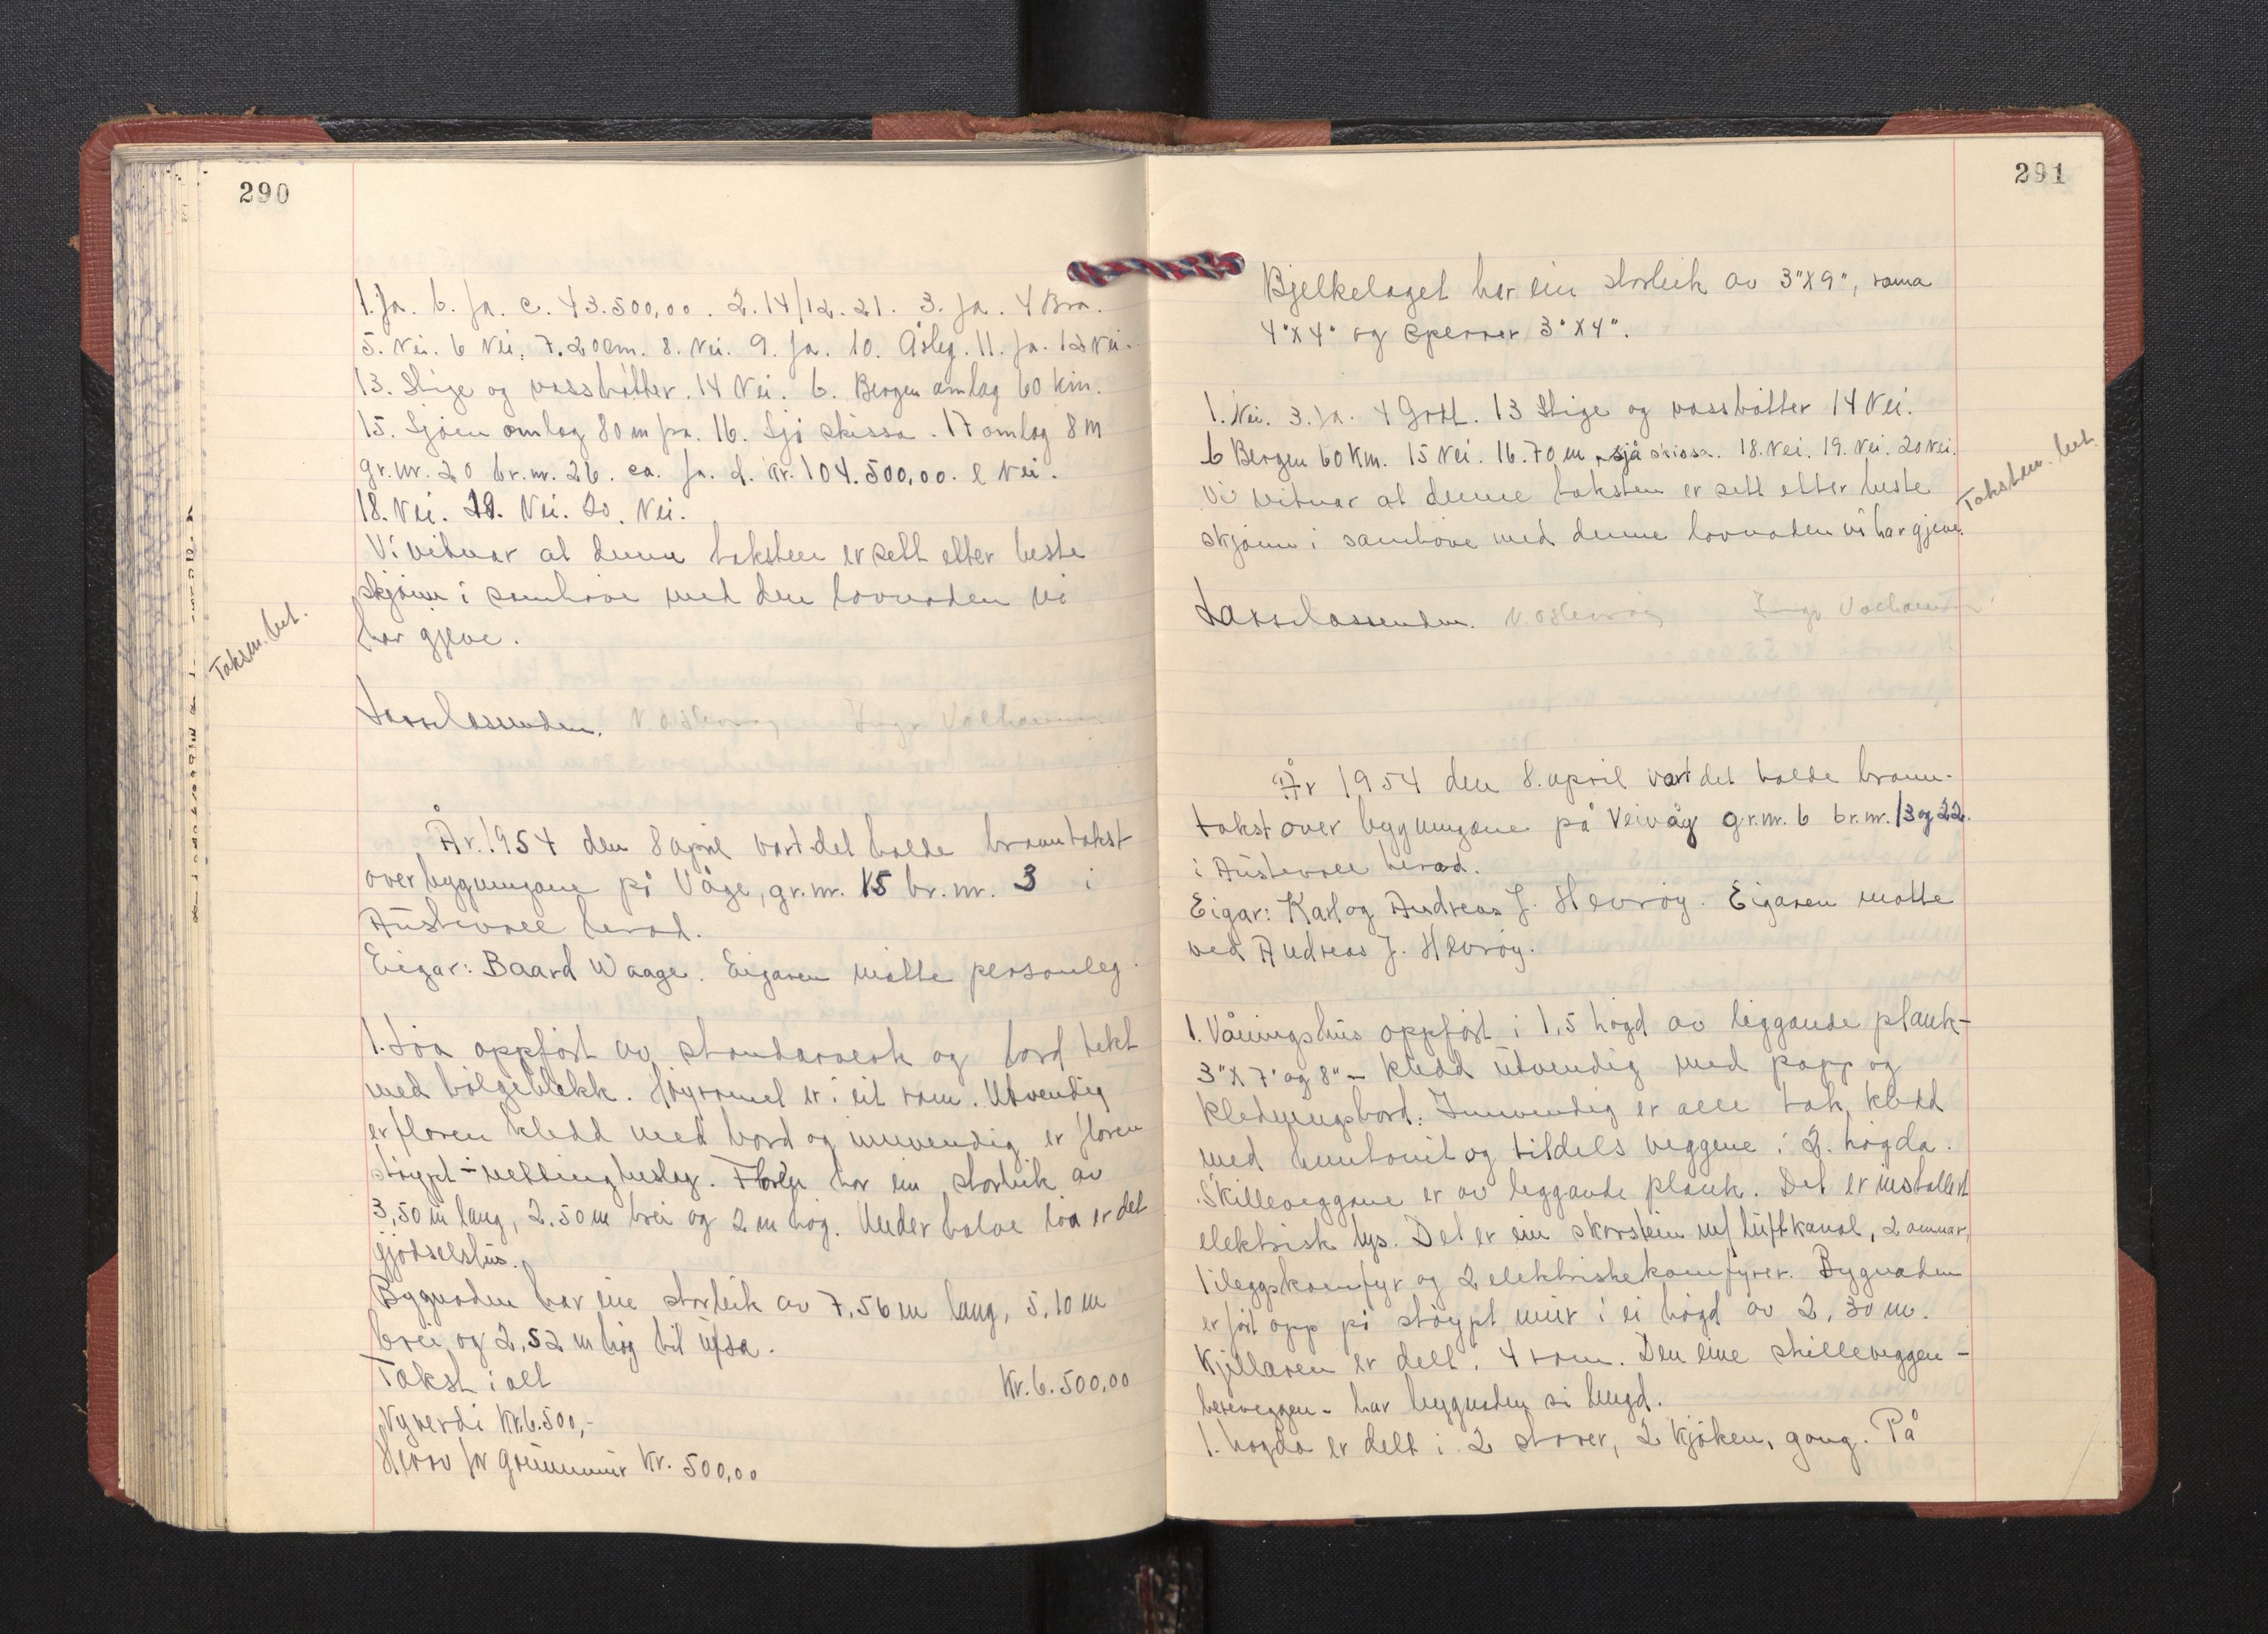 290
1. Ja. b. Ja. c. 43.500,00. 2. 14/12.21. 3. Ja. 4 Bra.
5. Nei. 6 Nei. 7. 20cm. 8. Nei. 9. Ja. 10. Åsleg. 11. Ja. 12 Nei.
13. Stige og vassbøtter. 14 Nei. b. Bergen omlag 60 km.
15. Sjøen omlag 80 m fra. 16. Sjå skissa. 17 omlag 8 M
gr.nr. 20 br.nr. 26. ca. Ja. d. Kr. 104.500,00. e Nei.
18. Nei. 19. Nei. 20. Nei.
Vi vitnar at denne taksten er sett etter beste
skjønn i samhøve med den lovnaden vi
har gjeve.
Taksm. bet.
Lars Lassesenden. N. Østervåg Inge Valhammer
År 1954 den 8 april vart det halde branntakst
over bygningane på Våge, gr.nr. 15 br.nr. 3 i
Austevoll herad.
Eigar: Baard Waage. Eigaren møtte personleg.
1. Löa oppført av standarverk og bord tekt
med bølgeblekk. Høyromet er i eit rom. Utvendig
er floren kledd med bord og innvendig er floren
støypt - nettinghusleg. Floren har ein storleik av
3,50 m lang, 2.50 m brei og 2 m høg. Under halve löa er det
gjødselshus.
Bygnaden har ein storleik av 7,56 m lang, 5,10 m
brei og 2,52 m høg til ufsa.
Takst i alt Kr. 6.500,00
Nyverdi Kr. 6.500,-
Herav for grunnmur Kr. 500,00
291
Bjelkelaget har ein storleik av 3"X9", rama
4"X4" og sperrer 3"X4".
1. Nei. 3. Ja. 4 Godt. 13 Stige og vassbøtter 14 Nei.
b Bergen 60 Km. 15 Nei. 16. 70 m, sjå skissa. 18. Nei. 19. Nei. 20 Nei.
Vi vitnar at denne taksten er sett etter beste
skjønn i samhøve med denne lovnaden vi har gjeve.
Takstm. bet.
Lars Lassesenden. N. Østervåg Inge Valhammer
År 1954 den 8. april vart det halde brann-
takst over bygningane på Veivåg gr.nr. 6 br.nr. 13 og 22.
i Austevoll herad.
Eigar: Karl og Andreas J. Hevrøy. Eigaren møtte
ved Andreas J. Hevrøy.
1. Våningshus oppført i 1,5 høgd av liggande plank-
3"X7" og 8" - kledd utvendig med papp og
kledningsbord. Innvendig er alle tak kledd
med huntonit og tildels veggene i 2. høgda.
Skilleveggane er av liggande plank. Det er installert
elektrisk lys. Det er ein skorstein m/ luftkanal, 2 omnar,
1 ileggskomfyr og 2 elektriske komfyrer. Bygnaden
er ført opp på støypt mur i ei høgd av 2,30 m.
Kjellaren er delt i 4 rom. Den eine skilleveggen -
bereveggen - har bygnaden si lengd.
1. høgda er delt i 2 stover, 2 kjøken, gang. På